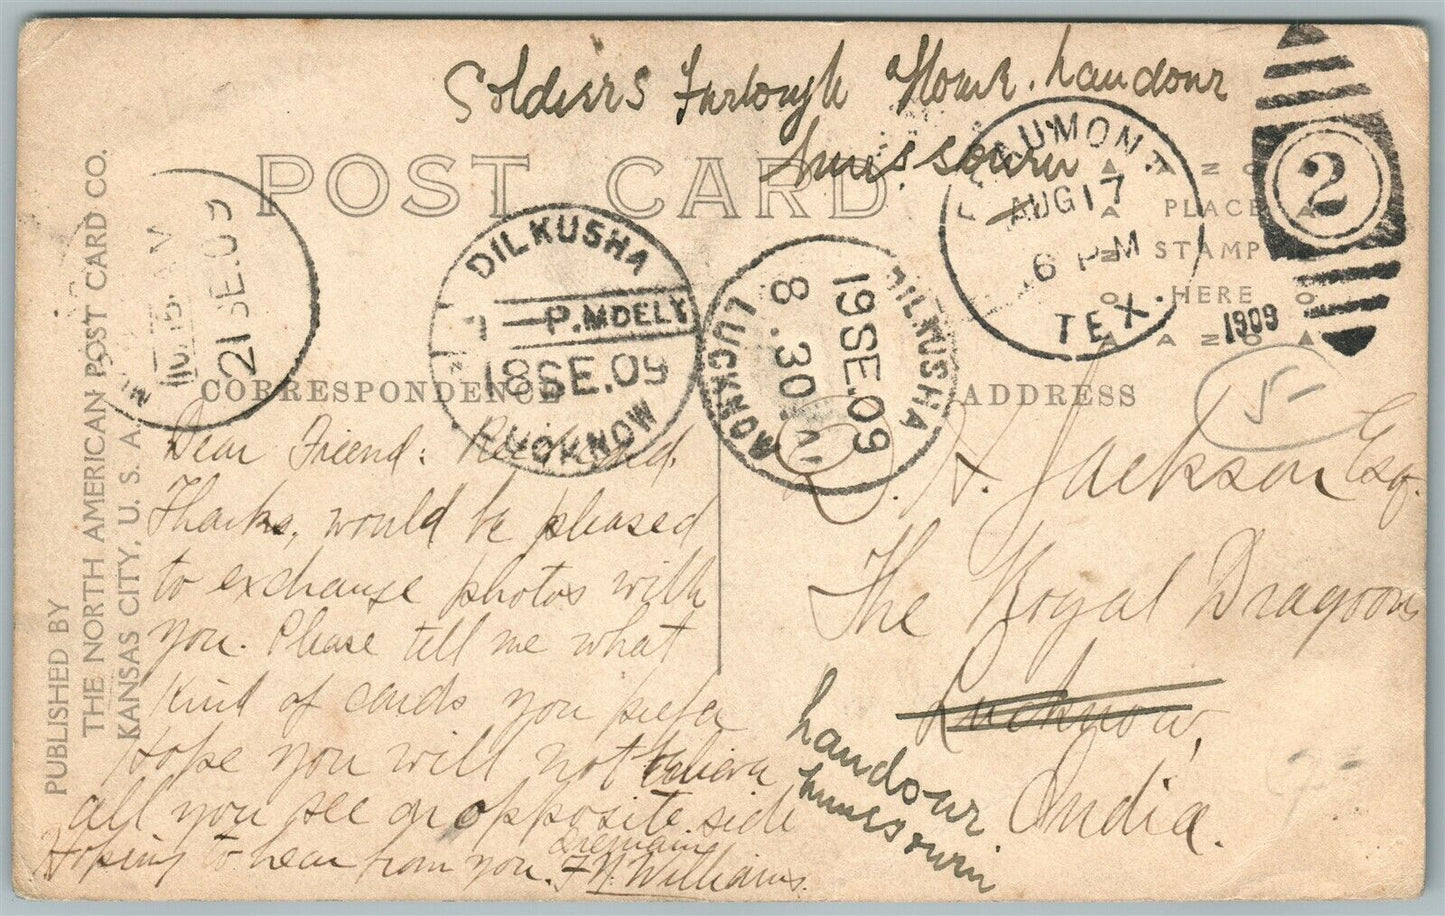 Soldiers Furlough Home. Landour
Mussourie
POST CARD
BEAUMONT
AUG 17
6 PM
TEX.
1909
2
PLACE
STAMP
HERE
DILKUSHA
P.M DELY
18 SE. 09
LUCKNOW
DILKUSHA
19 SE. 09
8.30
LUCKNOW
21 SE. 09
PUBLISHED BY
THE NORTH AMERICAN POST CARD CO.
KANSAS CITY, U. S. A.
CORRESPONDENCE
Dear Friend: Rec'd card.
Thanks, would be pleased
to exchange photos with
you. Please tell me what
kind of cards you prefer
Hope you will not believe
all you see on opposite side
Hoping to hear from you. I remain
F N. Williams.
ADDRESS
15-
H. Jackson Esq.
The Royal Dragoons
Lucknow,
India.
Landour
Mussourie